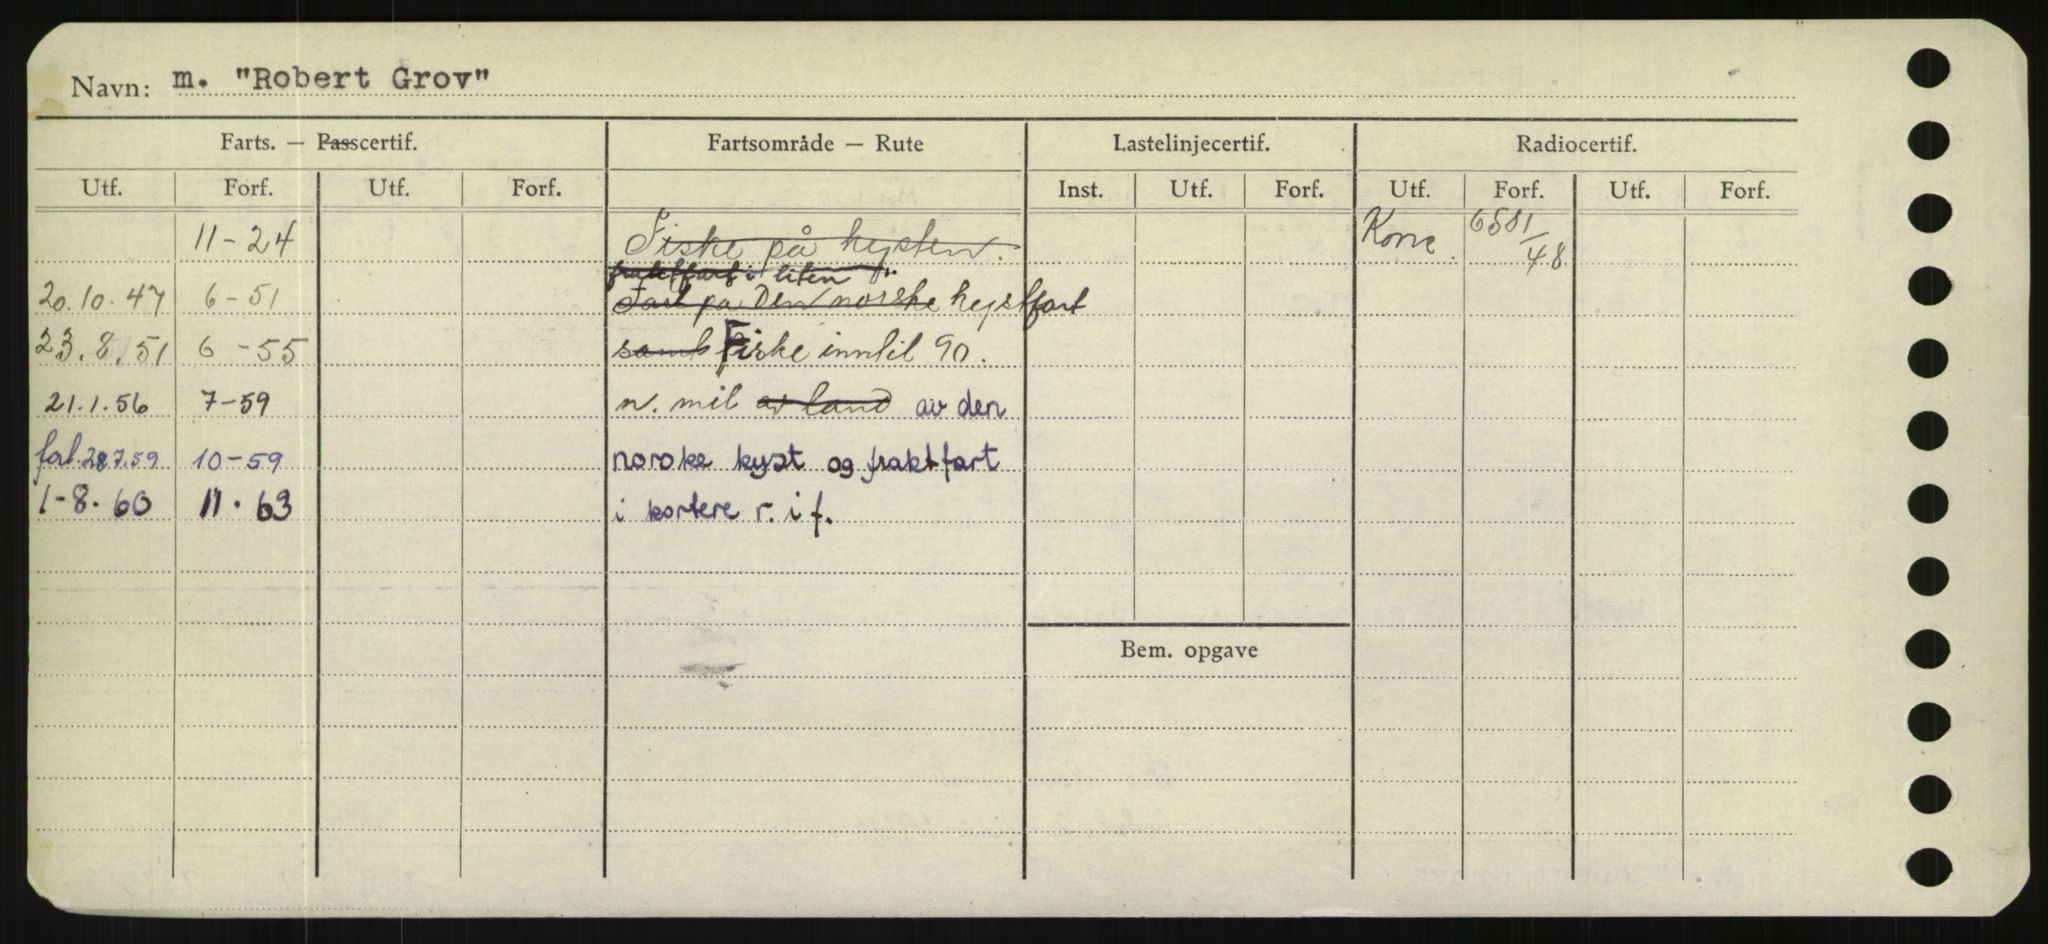 Navn: m. "Robert Grov"
Farts. — Passcertif. Fartsområde — Rute Lastelinjecertif. Radiocertif.
Utf. Forf. Utf. Forf. Inst. Utf. Forf. Utf. Forf. Utf. Forf.
11-24 Fiske på kysten. 6581/48
fraktfart i liten
20.10.47 6-51 Fart på Den norske kystfart
23.8.51 6-55 samt Fiske inntil 90.
21.1.56 7-59 n. mil av land av den
forl 28.7.59 10-59 norske kyst og fraktfart
1-8.60 11.63 i kortere r. i f.
Bem. opgave